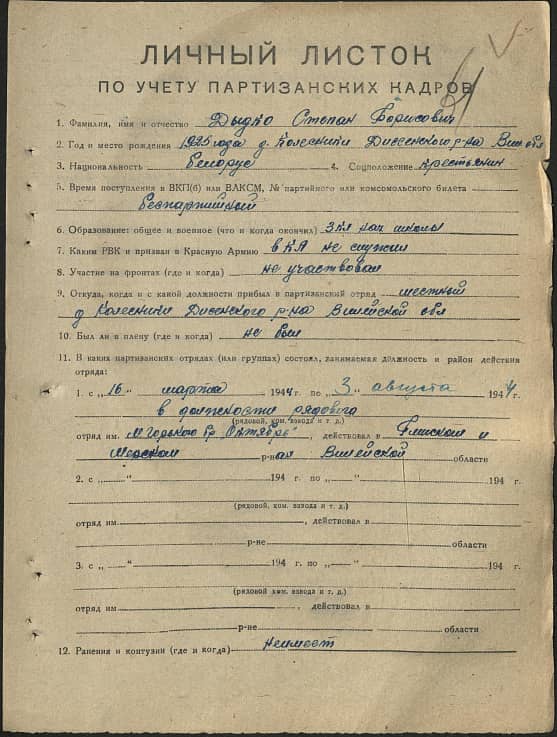 ЛИЧНЫЙ ЛИСТОК
ПО УЧЕТУ ПАРТИЗАНСКИХ КАДРОВ
1. Фамилия, имя и отчество Дыдко Степан Борисович
2. Год и место рождения 1925 года д. Колесники Дисенского р-на Вил обл
3. Национальность Белорус 4. Соцположение крестьянин
5. Время поступления в ВКП(б) или ВЛКСМ, № партийного или комсомольского билета
Беспартийный
6. Образование: общее и военное (что и когда окончил) 3 кл нач школы
7. Каким РВК и призван в Красную Армию в КА не служил
8. Участие на фронтах (где и когда) не участвовал
9. Откуда, когда и с какой должности прибыл в партизанский отряд местный
д Колесники Дисенского р-на Вилейской обл
10. Был ли в плену (где и когда) не был
11. В каких партизанских отрядах (или группах) состоял, занимаемая должность и район действия
отряда:
1. с „16" марта 1944 г. по „3" августа 1944 г.
в должности рядового
(рядовой, ком. взвода и т. д.)
отряд им. М Горького бр „Октябрь", действовал в Глыском и
Мерском р-нах Вилейской области
2. с „ " 194 г. по „ " 194 г.
(рядовой, ком. взвода и т. д.)
отряд им. , действовал в
р-не области
3. с „ " 194 г. по „ " 194 г.
(рядовой ком. взвода и т. д.)
отряд им. , действовал в
р-не области
12. Ранения и контузии (где и когда) неимеет